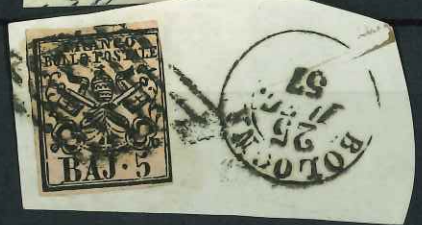 FRANCO
BOLLO POSTALE
BAJ · 5
BOLOGNA
25
57